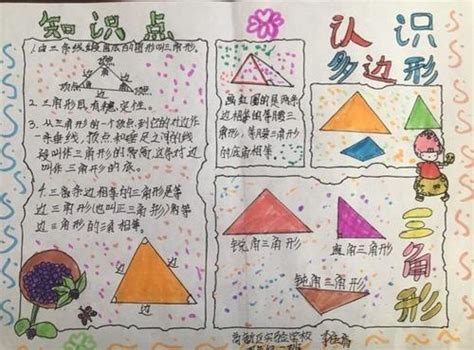 知识点
1.由三条线段围成的图形叫三角形.
顶点
边 边
顶点 边 顶点
2.三角形具有稳定性.
3.从三角形的一个顶点到它的对边作
一条垂线,顶点和垂足之间的线
段叫作三角形的高,这条对边
叫作三角形的底.
4.三条边相等的三角形是等
边三角形(也叫正三角形)等
边三角形的三角相等.
边 边
边
两条
边相等的等腰三
角形,等腰三角形
的底角相等.
认识
多边形
锐角三角形
直角三角形
钝角三角形
三角形
实验学校